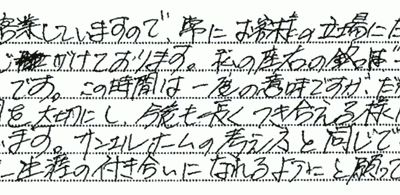 客業していますので 常に お客様の立場にた
心掛けております。私の座右の銘は"一
です。この時間は一度の意味ですが だ
を大切にし 今後も長くつき合える様に
います。サンエルホームの考えると同じで
に生涯の付き合いになれるようにと願って